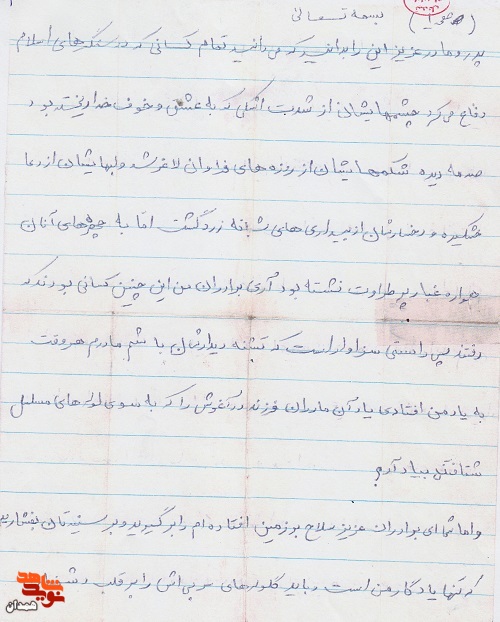 بسمه تعالی
پدر و مادر عزیز این را بدانید که می دانید تمام کسانی که در سنگرهای اسلام
دفاع می کرد چشمهایشان از شدت اشکی که به عشق و خوف خدا ریخته بود
صدمه دیده شکمهایشان از روزه های فراوان لاغر شد و لبهایشان از دعا
خشکیده و رخسارشان از بیداری های شبانه زرد گشت اما به چهره های آنان
همواره غبار پر طراوت نشسته بود آری برادران من این چنین کسانی بودند که
رفتند پس راستی سزاوار است که تشنه دیدارشان باشم مادرم هر وقت
به یاد من افتادی یاد آن مادران فرزند در آغوش را که به سوی لوله های مسلسل
شتافتند بیاد آرم
و اما شما ای برادران عزیز سلاح بر زمین افتاده ام را برگیرید و بر سینه تان بفشارید
که تنها یادگار من است و باید گلوله های سربی اش را بر قلب دشمن
نوید شاهد
همدان